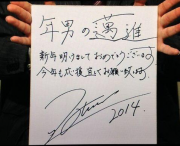 年男の邁進
新年明けましておめでとうございます
今年も応援宜しくお願い致します
2014.